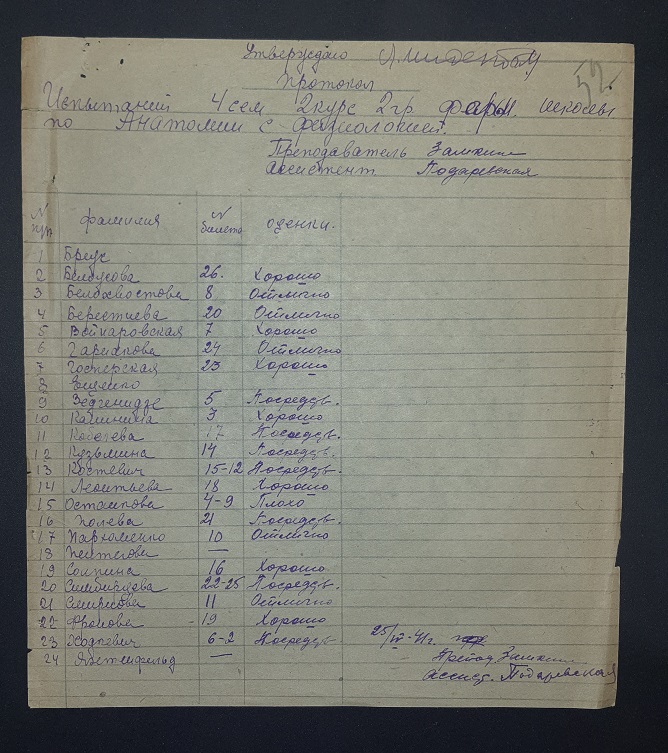 Утверждаю
52.
Протокол
Испытаний 4 сем 2 курс 2 гр фарм. школы
по Анатомии с физиологией.
Преподаватель Замкин
Ассистент Подаревская
N п/п фамилия N билета оценки.
1 Бреус
2 Белоусова 26. Хорошо
3 Белохвостова 8 Отлично
4 Берестнева 20 Отлично
5 Войнаровская 7 Хорошо
6 24 Отлично
7 23 Хорошо
8
9 Зедгенидзе 5 Посредств.
10 Калинина 3 Хорошо
11 17 Посредств.
12 Кузьмина 14 Посредств.
13 Костевич 15-12 Посредств.
14 Леонтьева 18 Хорошо
15 Остаппова 4-9 Плохо
16 Полева 21 Посредств.
17 Пархоменко 10 Отлично
18 —
19 16 Хорошо
20 22-25 Посредств.
21 Смирнова 11 Отлично
22 Фролова 19 Хорошо
23 Ходкевич 6-2 Посредств 25/VI-41г.
24 — Препод. Замкин
Ассист. Подаревская